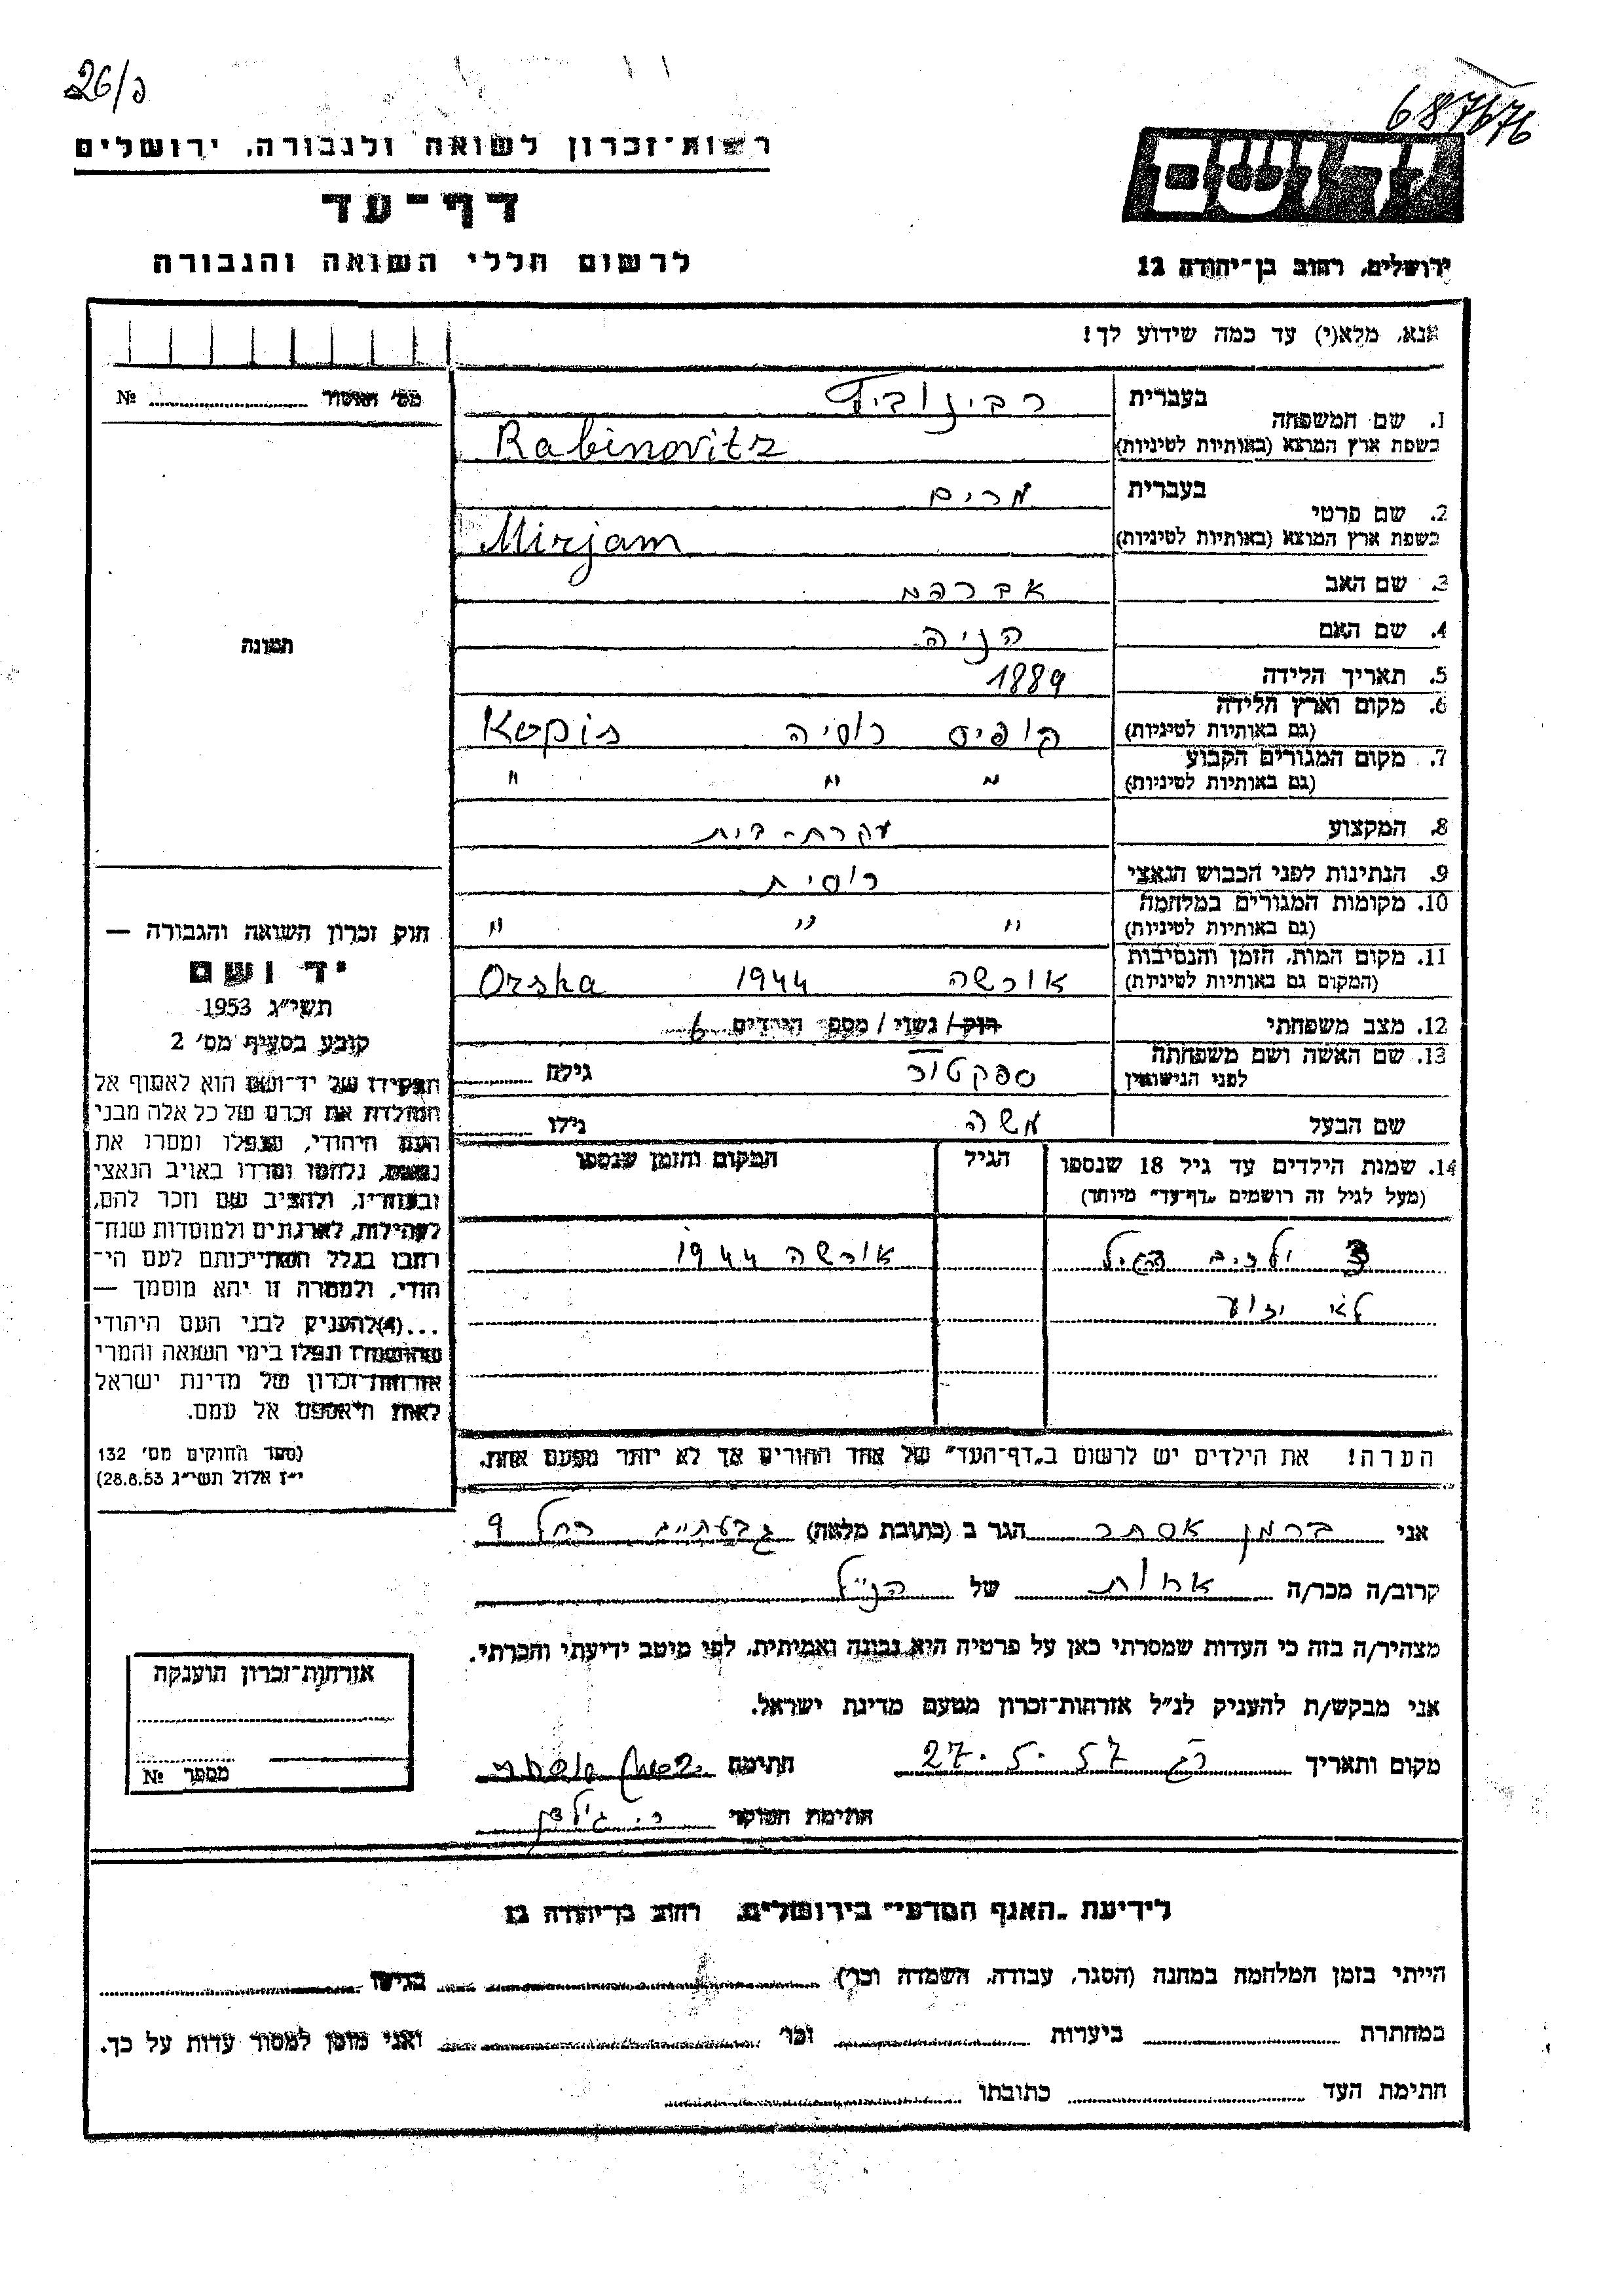 26/כ
687676
רשות־זכרון לשואה ולגבורה, ירושלים
דף־עד
לרשום חללי השואה והגבורה
יד ושם
ירושלים, רחוב בן־יהודה 12
אנא, מלא(י) עד כמה שידוע לך!
מס׳ האשור № 
1. שם המשפחה בעברית רבינוביץ
בשפת ארץ המוצא (באותיות לטיניות) Rabinovitz
2. שם פרטי בעברית מרים
בשפת ארץ המוצא (באותיות לטיניות) Mirjam
3. שם האב אברהם
4. שם האם הניה
5. תאריך הלידה 1889
6. מקום וארץ הלידה (גם באותיות לטיניות) קופיס רוסיה Kopis
7. מקום המגורים הקבוע (גם באותיות לטיניות) " " "
8. המקצוע עקרת-בית
9. הנתינות לפני הכבוש הנאצי רוסית
10. מקומות המגורים במלחמה (גם באותיות לטיניות) " " "
11. מקום המות, הזמן והנסיבות (המקום גם באותיות לטיניות) אורשה 1944 Orska
12. מצב משפחתי רוק/ נשוי/ מספר הילדים 6
13. שם האשה ושם משפחתה לפני הנישואין ספקטור גילה
שם הבעל משה גילו
14. שמות הילדים עד גיל 18 שנספו
(מעל לגיל זה רושמים „דף־עד" מיוחד)
הגיל
המקום והזמן שנספו
3 ילדים הגיל אורשה 1944
לא ידוע
הערה! את הילדים יש לרשום ב„דף־העד" של אחד ההורים אך לא יותר מפעם אחת.
תמונה
חוק זכרון השואה והגבורה —
יד ושם
תשי״ג 1953
קובע בסעיף מס׳ 2
תפקידו של יד־ושם הוא לאסוף אל
המולדת את זכרם של כל אלה מבני
העם היהודי, שנפלו ומסרו את
נפשם, נלחמו ומרדו באויב הנאצי
ובעוזריו, ולהציב שם וזכר להם,
לקהילות, לארגונים ולמוסדות שנח־
רבו בגלל השתייכותם לעם הי־
הודי, ולמטרה זו יהא מוסמך —
...(4)להעניק לבני העם היהודי
שהושמדו ונפלו בימי השואה והמרי
אזרחות־זכרון של מדינת ישראל
לאות היאספם אל עמם.
(ספר החוקים מס׳ 132
י״ז אלול תשי״ג 28.8.53)
אני ברמן אסתר הגר ב (כתובת מלאה) רחל 9
קרוב/ה מכר/ה אחות של הנ״ל
מצהיר/ה בזה כי העדות שמסרתי כאן על פרטיה היא נכונה ואמיתית, לפי מיטב ידיעתי והכרתי.
אני מבקש/ת להעניק לנ״ל אזרחות־זכרון מטעם מדינת ישראל.
מקום ותאריך רג 27.5.57 חתימה
חתימת הפוקד
אזרחות־זכרון הוענקה
מספר №
לידיעת „האגף המדעי" בירושלים, רחוב בן־יהודה 12
הייתי בזמן המלחמה במחנה (הסגר, עבודה, השמדה וכו׳) בגיטו
במחתרת ביערות וכו׳ ואני מוכן למסור עדות על כך.
חתימת העד כתובתו